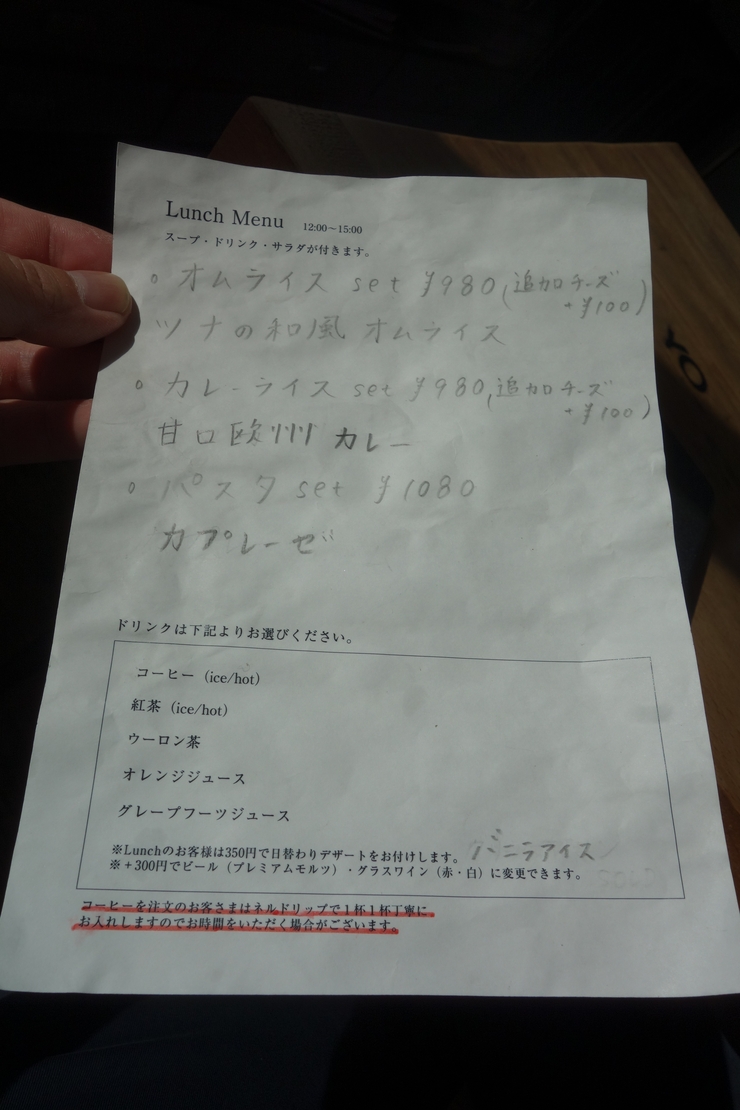 Lunch Menu 12:00～15:00
スープ・ドリンク・サラダが付きます。
○ オムライス set ¥980 (追加チーズ +¥100)
ツナの和風 オムライス
○ カレーライス set ¥980 (追加チーズ +¥100)
甘口欧州 カレー
○ パスタ set ¥1080
カプレーゼ
ドリンクは下記よりお選びください。
コーヒー（ice/hot）
紅茶（ice/hot）
ウーロン茶
オレンジジュース
グレープフーツジュース
※Lunchのお客様は350円で日替わりデザートをお付けします。 バニラアイス
※＋300円でビール（プレミアムモルツ）・グラスワイン（赤・白）に変更できます。
コーヒーを注文のお客さまはネルドリップで1杯1杯丁寧に
お入れしますのでお時間をいただく場合がございます。
YO